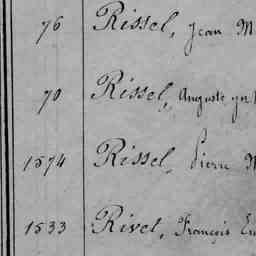 76 Rissel, Jean M
70 Rissel, Auguste
1574 Rissel, Pierre M
1533 Rivet, François Em